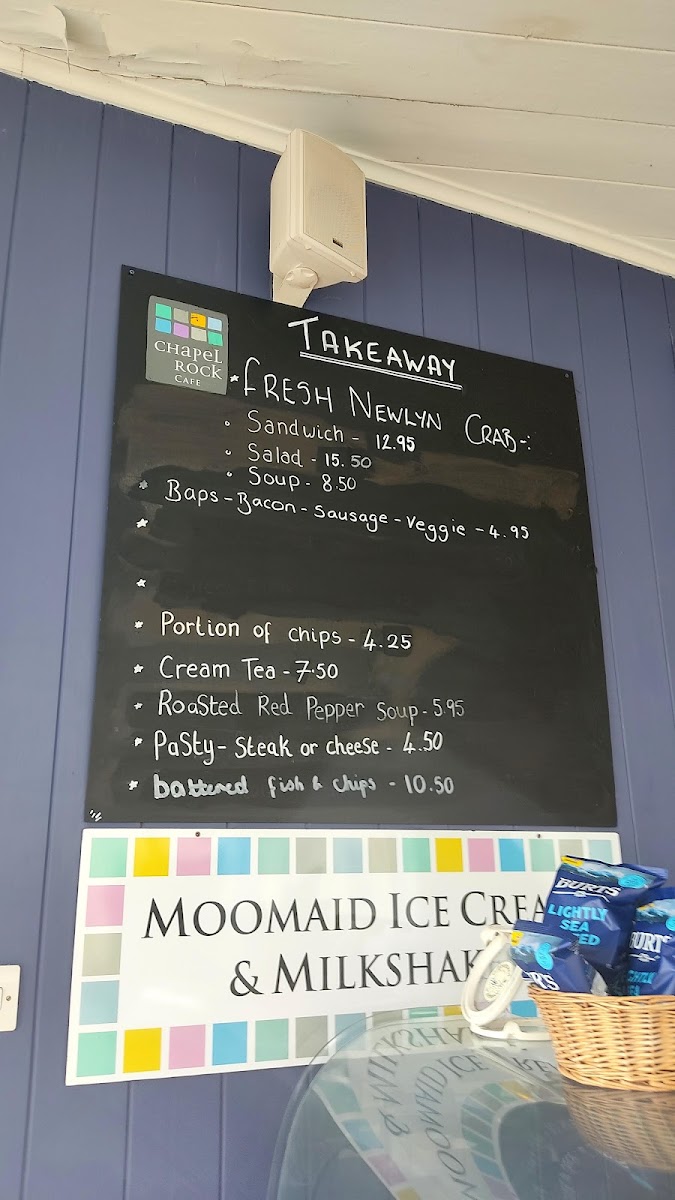 CHAPEL
ROCK
CAFE
TAKEAWAY
* FRESH NEWLYN CRAB-:
◦ Sandwich - 12.95
◦ Salad - 15.50
◦ Soup - 8.50
* Baps - Bacon - Sausage - Veggie - 4.95
*
*
* Portion of chips - 4.25
* Cream Tea - 7.50
* Roasted Red Pepper Soup - 5.95
* Pasty - Steak or cheese - 4.50
* battered fish & chips - 10.50
MOOMAID ICE CREA
& MILKSHAK
BURTS
LIGHTLY
SEA
BURT